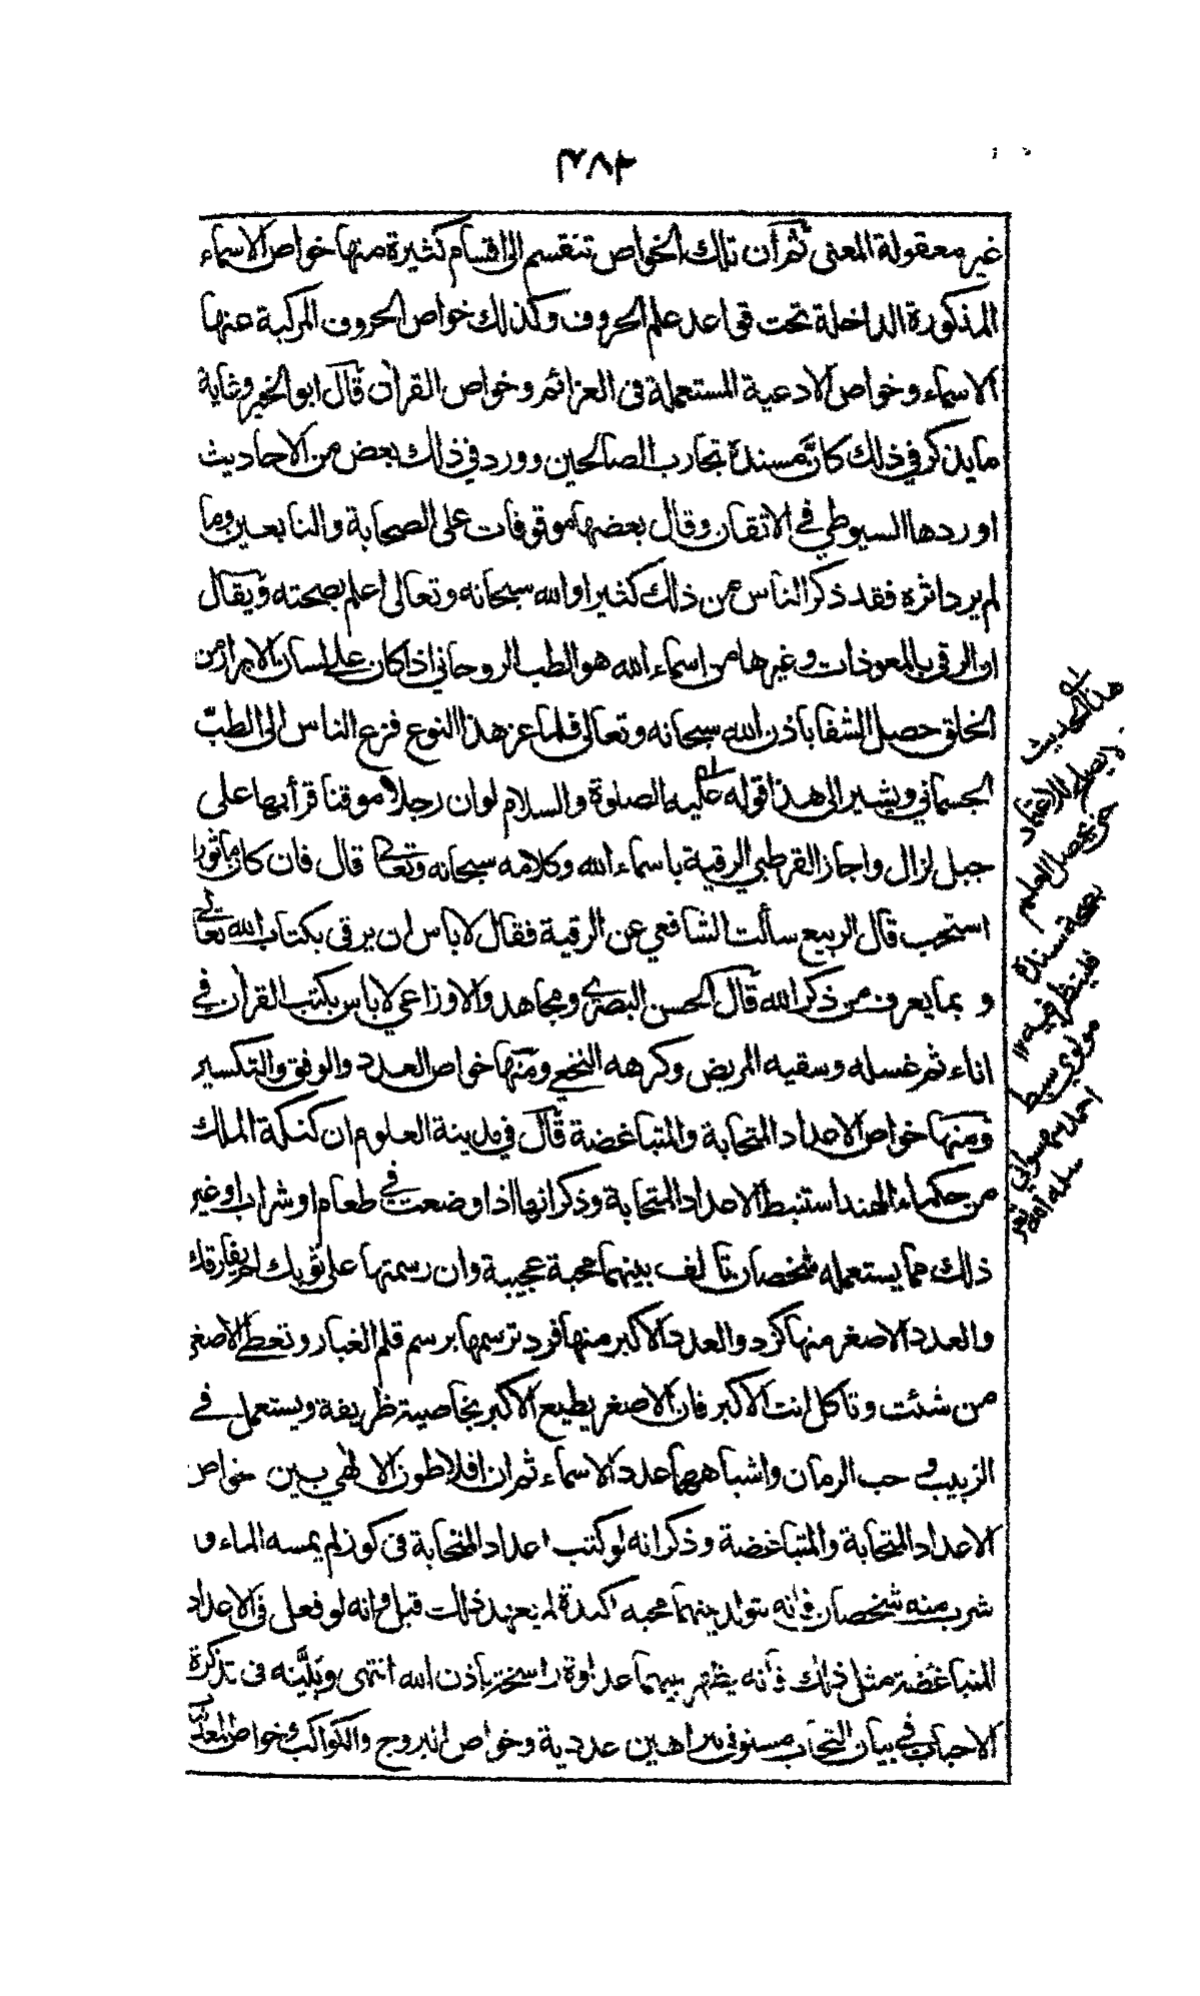 ٤٨٣
غير معقولة المعنى ثم ان تلك الخواص تنقسم الى اقسام كثيرة منها خواص الاسماء
المذكورة الداخلة تحت قواعد علم الحروف وكذلك خواص الحروف المركبة عنها
الاسماء وخواص الادعية المستعملة فى العزائم وخواص القرآن قال ابو الخير وغاية
ما يذكر في ذلك كان مسنده تجارب الصالحين وورد في ذلك بعض من الاحاديث
اوردها السيوطي في الاتقان وقال بعضها موقوفات على الصحابة والتابعين وما
لم يرد اثره فقد ذكر الناس من ذلك كثيرا والله سبحانه وتعالى اعلم بصحته ويقال
ان الرقى بالمعوذات وغيرها من اسماء الله هو الطب الروحاني اذا كان على لسان الابرار من
الخلق حصل الشفا باذن الله سبحانه وتعالى فلما عز هذا النوع فزع الناس الى الطب
الجسماني ويشير الى هذا قوله عليه الصلوة والسلام لو ان رجلا موقنا قرأ بها على
جبل لزال واجاز القرطبي الرقية باسماء الله وكلامه سبحانه وتعالى قال فان كان ماثورا
استحب قال الربيع سألت الشافعي عن الرقية فقال لا باس ان يرقى بكتاب الله تعالى
و بما يعرف من ذكر الله قال الحسن البصري ومجاهد والاوزاعي لا باس بكتب القرآن في
اناء ثم غسله وسقيه المريض وكرهه النخعي ومنها خواص العدد والوفق والتكسير
ومنها خواص الاعداد المتحابة والمتباغضة قال في مدينة العلوم ان كنكة الملك
من حكماء الهند استنبط الاعداد المتحابة وذكر انها اذا وضعت في طعام او شراب او غير
ذلك مما يستعمله شخصان تالف بينهما محبة عجيبة وان رسمتها على ثوبك لم يفارقك
والعدد الاصغر منها كرد والعدد الاكبر منها فرد ترسمها برسم قلم الغبار وتعطى الاصغر
من شئت وتاكل انت الاكبر فان الاصغر يطيع الاكبر بخاصية ظريفة ويستعمل في
الزبيب و حب الرمان واشباههما عدد الاسماء ثم ان افلاطون الالهي بين خواص
الاعداد المتحابة والمتباغضة وذكر انه لو كتب اعداد المتحابة فى كوز لم يمسه الماء و
شرب منه شخصان فانه يتولد بينهما محبة اكيدة لم يعهد ذلك قبل وانه لو فعل فى الاعداد
المتباغضة مثل ذلك فأنه يظهر بينهما عداوة راسخة باذن الله انتهى وبيّنه فى تذكرة
الاحباب في بيان التحاب مستوفى ببراهين عددية وخواص البروج والكواكب وخواص
هذا الحديث
لا يصلح للاعتماد
بصحة سنده
فلينظر فيه ١٢
مولوي سيد
احمد سهسواني
سلمه الله